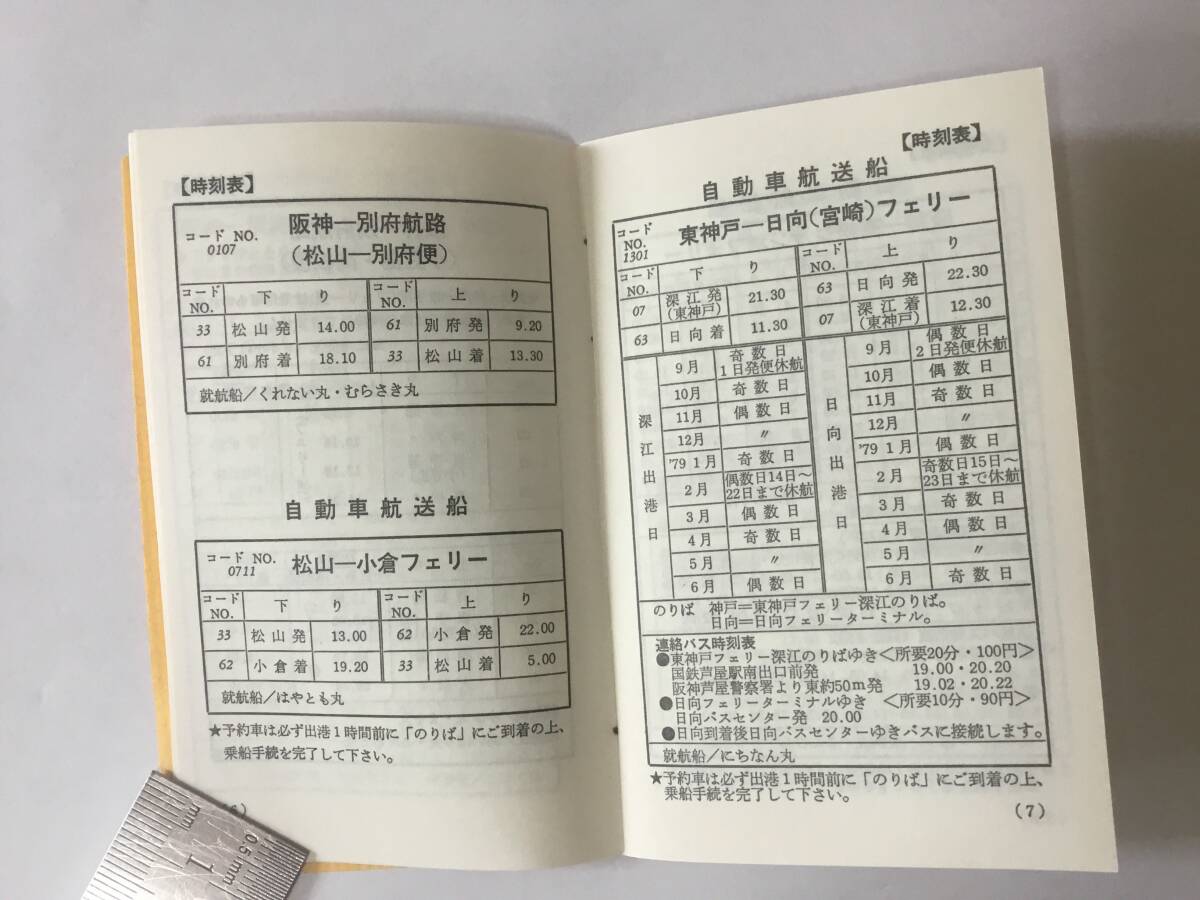 【時刻表】
コード NO.
0107
阪神―別府航路
(松山―別府便)
コード NO. 下り コード NO. 上り
33 松山発 14.00 61 別府発 9.20
61 別府着 18.10 33 松山着 13.30
就航船/くれない丸・むらさき丸
自動車航送船
コード NO.
0711
松山―小倉フェリー
コード NO. 下り コード NO. 上り
33 松山発 13.00 62 小倉発 22.00
62 小倉着 19.20 33 松山着 5.00
就航船/はやとも丸
★予約車は必ず出港1時間前に「のりば」にご到着の上、
乗船手続を完了して下さい。
mm 1 0.5mm
【時刻表】
自動車航送船
コード NO.
1301
東神戸―日向(宮崎)フェリー
コード NO. 下り コード NO. 上り
07 深江発(東神戸) 21.30 63 日向発 22.30
63 日向着 11.30 07 深江着(東神戸) 12.30
深江出港日
9月 奇数日 1日発便休航
10月 奇数日
11月 偶数日
12月 〃
'79 1月 奇数日
2月 偶数日14日〜22日まで休航
3月 偶数日
4月 奇数日
5月 〃
6月 偶数日
日向出港日
9月 偶数日 2日発便休航
10月 偶数日
11月 奇数日
12月 〃
'79 1月 偶数日
2月 奇数日15日〜23日まで休航
3月 奇数日
4月 偶数日
5月 〃
6月 奇数日
のりば 神戸=東神戸フェリー深江のりば。
日向=日向フェリーターミナル。
連絡バス時刻表
●東神戸フェリー深江のりばゆき<所要20分・100円>
国鉄芦屋駅南出口前発 19.00・20.20
阪神芦屋警察署より東約50m発 19.02・20.22
●日向フェリーターミナルゆき <所要10分・90円>
日向バスセンター発 20.00
●日向到着後日向バスセンターゆきバスに接続します。
就航船/にちなん丸
★予約車は必ず出港1時間前に「のりば」にご到着の上、
乗船手続を完了して下さい。
(7)